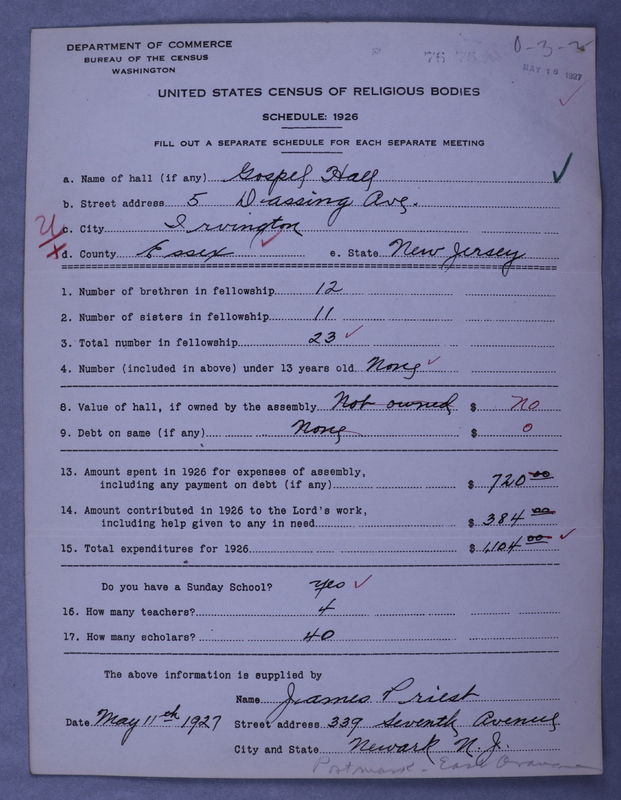 DEPARTMENT OF COMMERCE
BUREAU OF THE CENSUS
WASHINGTON
0-3-2
MAY 16 1927
UNITED STATES CENSUS OF RELIGIOUS BODIES
SCHEDULE: 1926
FILL OUT A SEPARATE SCHEDULE FOR EACH SEPARATE MEETING
a. Name of hall (if any) Gospel Hall
b. Street address 5 Ave.
c. City Irvington
d. County Essex e. State New Jersey
1. Number of brethren in fellowship 12
2. Number of sisters in fellowship 11
3. Total number in fellowship 23
4. Number (included in above) under 13 years old None
8. Value of hall, if owned by the assembly Not owned $ no
9. Debt on same (if any) None $ 0
13. Amount spent in 1926 for expenses of assembly,
including any payment on debt (if any) $ 720 00
14. Amount contributed in 1926 to the Lord's work,
including help given to any in need $ 384 00
15. Total expenditures for 1926 $ 1,104 00
Do you have a Sunday School? yes
16. How many teachers? 4
17. How many scholars? 40
The above information is supplied by
Name James Priest
Date May 11th 1927 Street address 339 Seventh Avenue
City and State Newark N.J.
Postmark - East